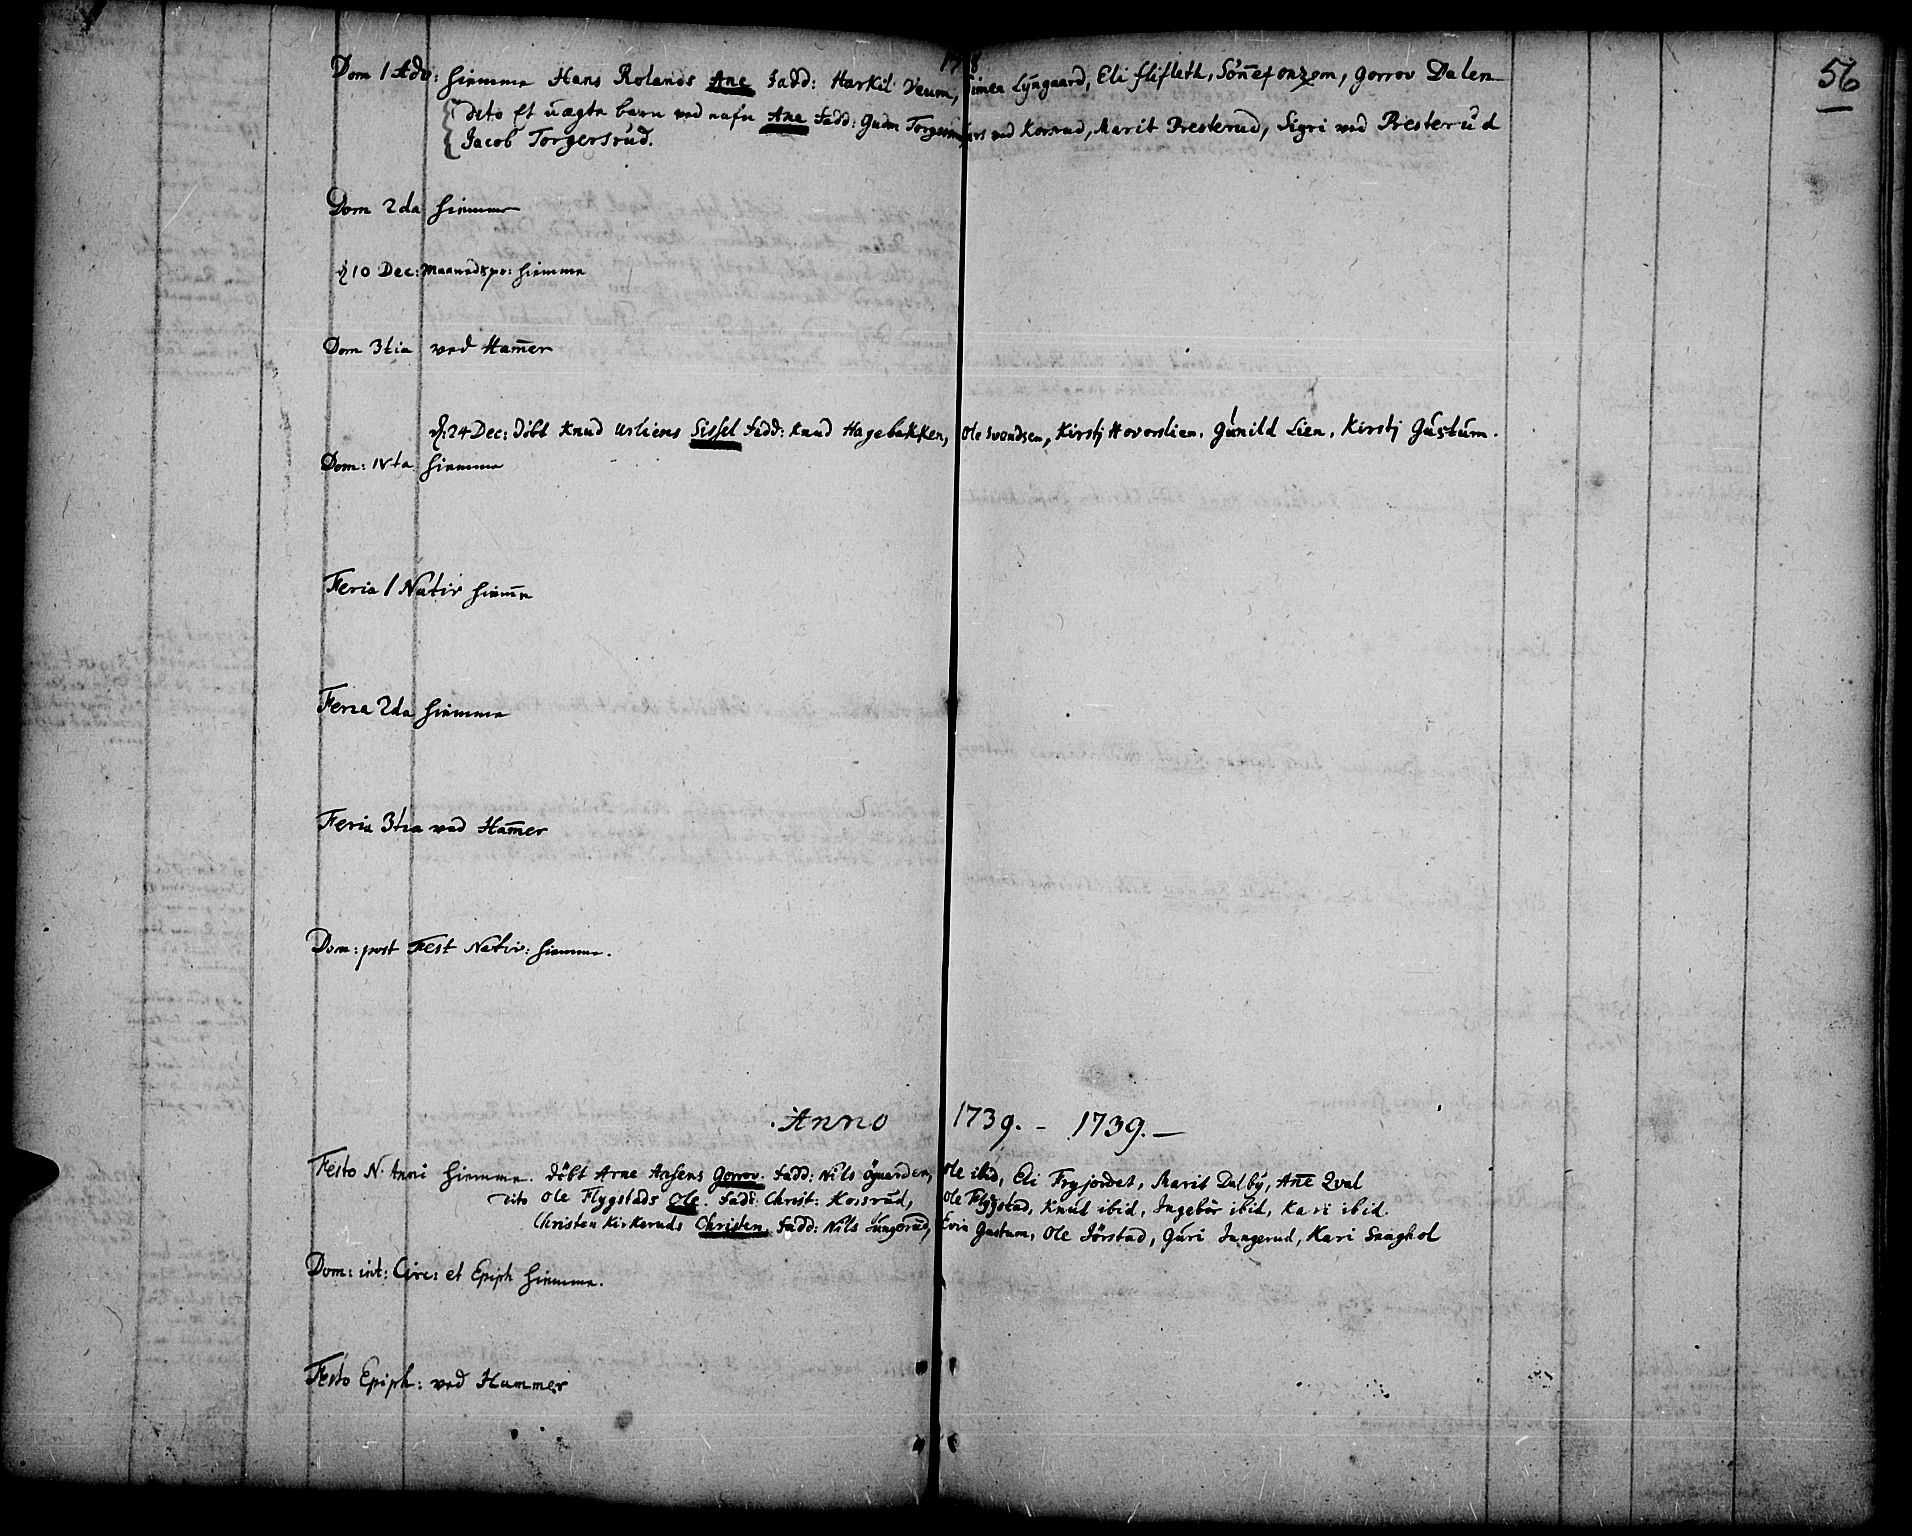 56
Dom 1 Adv: hiemme Hans Rolands Ane Fadd: Harkil Veum, Simen Lyngaard, Eli flifleth, gorrov Dalen
dito Et uægte barn ved nafn Ane Fadd: Gudm ved Korsrud, Marit Presterud, Sigri ved Presterud
Jacob Torgersrud.
Dom 2da hiemme
10 Dec: hiemme
Dom 3tia ved Ham̄er
24 Dec: döbt Knud Urliens Sissel Fadd: Knud Hagebakken, Ole Svendsen, Kirstj Hoverslien, Gunild Lien, Kirstj Gustum.
Dom: IVta hiemme
Feria 1 Nativ hiem̄e
Feria 2da hiemme
Feria 3tia ved Ham̄er
Dom: post Fest Nativ: hiemme.
Anno 1739. - 1739. -
Festo N. Anni hiemme. döbt Arne Gorrov. Fadd: Nils Öguarden, Ole ibid, Eli Fryjordet, Marit Dalby, An̄e Qval
dito Ole Flygstads Ole. Fadd: Christ: Korsrud, Ole Flygstad, Knud ibid, Ingebör ibid, Kari ibid.
Christen Kirkeruds Christen Fadd: Nils Jungerud, Evin Gustum, Ole Jörstad, Guri Jungerud, Kari
Dom: int: Circ: et Epiph hiemme.
Festo Epiph: ved Hammer